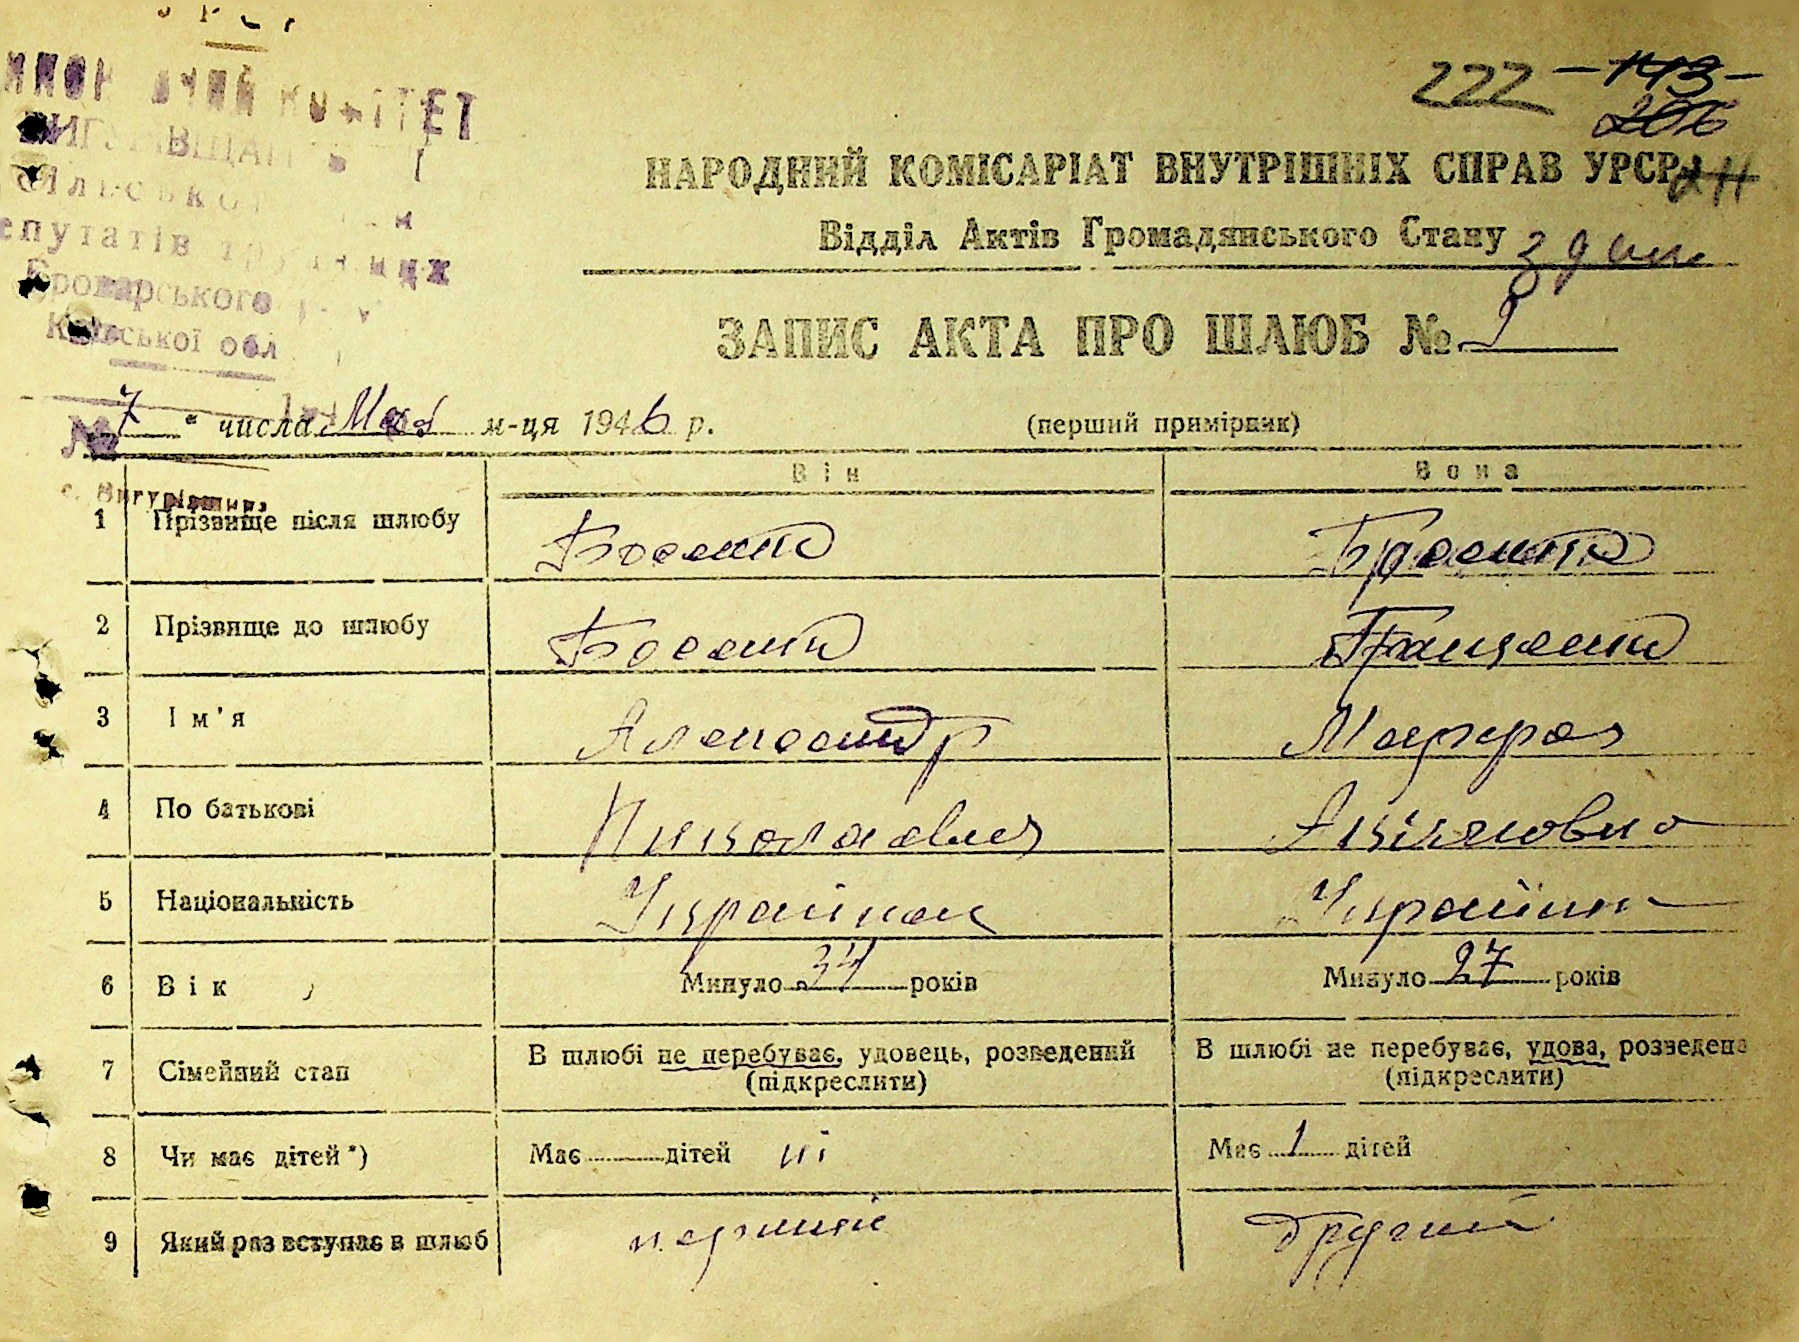 222 - 143 -
206
НАРОДНИЙ КОМІСАРІАТ ВНУТРІШНІХ СПРАВ УРСР
Відділ Актів Громадянського Стану
ЗАПИС АКТА ПРО ШЛЮБ №
епутатів
Броварського
Київської обл
№
7 " числа Мая м-ця 1946 р. (перший примірник)
Він Вона
1 Прізвище після шлюбу
2 Прізвище до шлюбу
3 Ім'я Александр
4 По батькові Николаевич
5 Національність Українец Українка
6 Вік Минуло 34 років Минуло 27 років
7 Сімейний стан В шлюбі не перебуває, удовець, розведений В шлюбі не перебуває, удова, розведена
(підкреслити) (підкреслити)
8 Чи має дітей *) Має дітей ні Має 1 дітей
9 Який раз вступає в шлюб перший другий